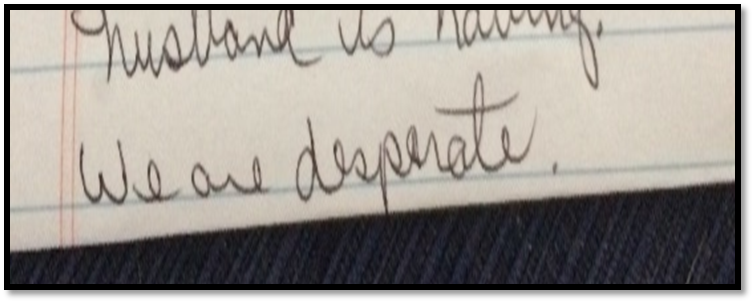 husband is having.
We are desperate.